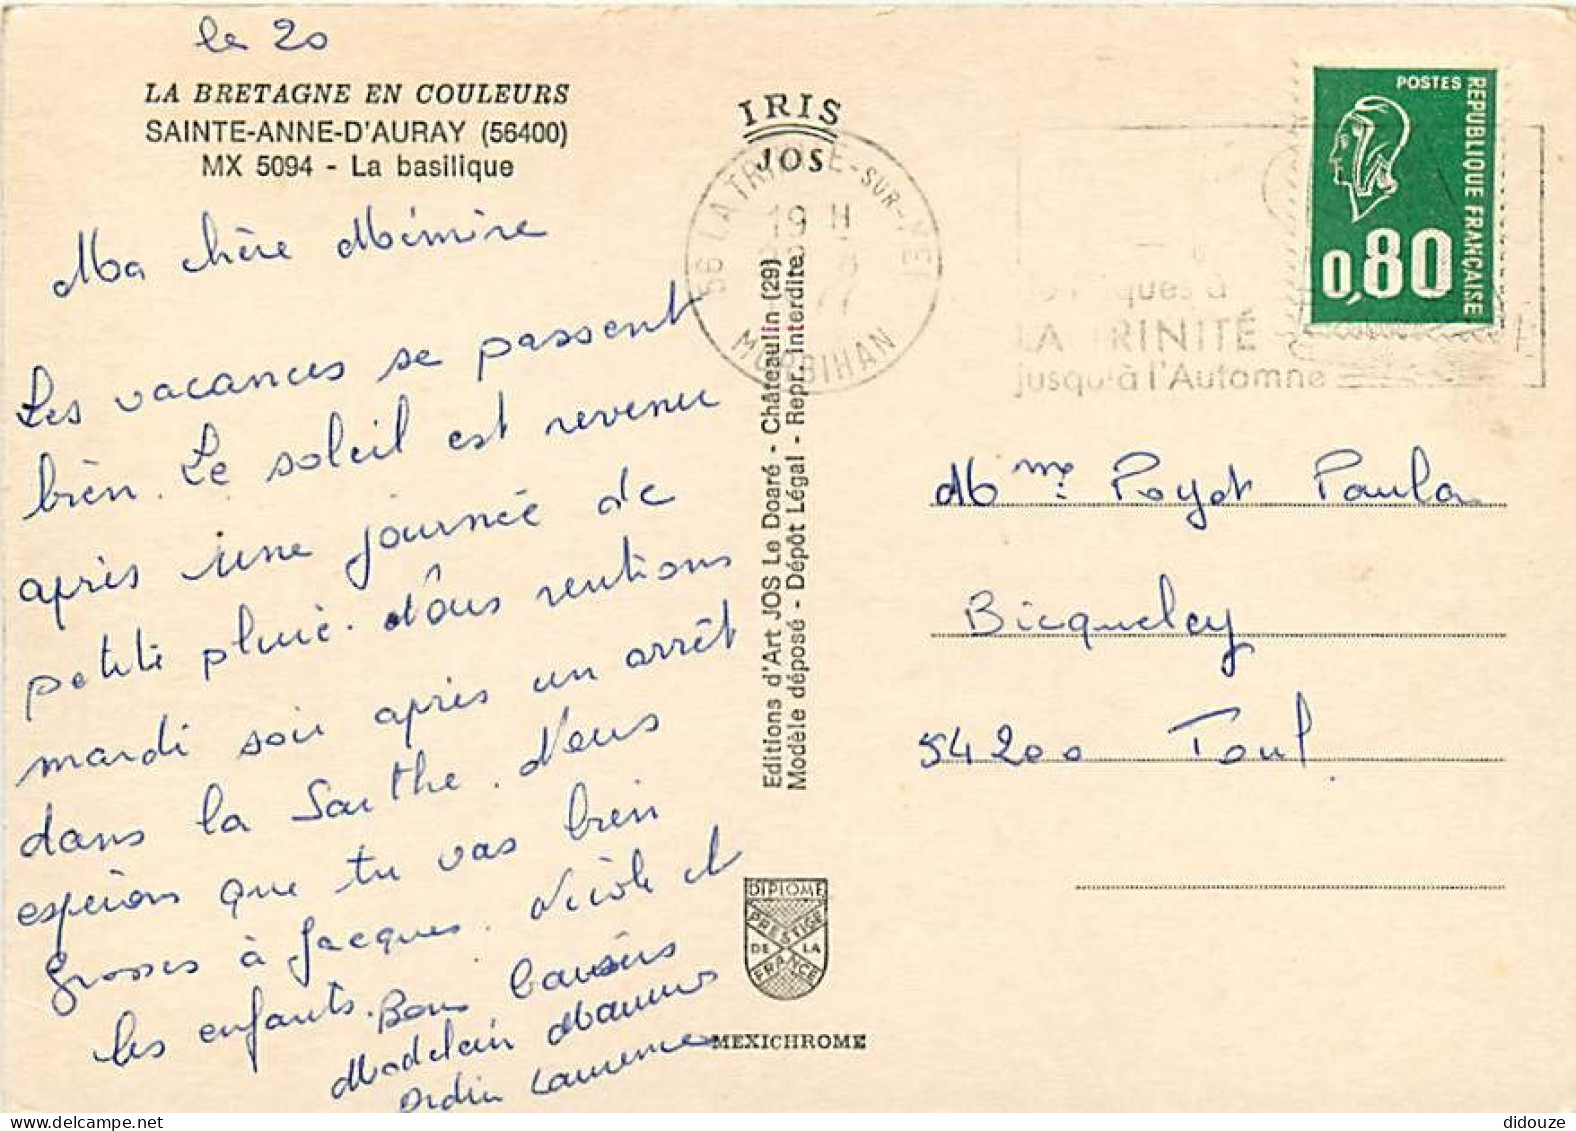 le 20
LA BRETAGNE EN COULEURS
SAINTE-ANNE-D'AURAY (56400)
MX 5094 - La basilique
Ma chère Mémère
Les vacances se passent
bien. Le soleil est revenu
après une journée de
petite pluie. Nous rentrons
mardi soir après un arrêt
dans la Sarthe. Nous
espérons que tu vas bien
Grosses à Jacques. Nicole et
les enfants. Bons baisers
Madelein
Didier Laurence
IRIS
JOS
56 LA TRINITE-SUR-MER
19 H
77
MORBIHAN
Editions d'Art JOS Le Doaré - Châteaulin (29)
Modèle déposé - Dépôt Légal - Repr. interdite
DIPLOME
PRESTIGE
DE LA
FRANCE
MEXICHROME
POSTES
REPUBLIQUE FRANCAISE
0,80
à
LA TRINITÉ
jusqu'à l'Automne
Mme Poyot Paula
Bicqueley
54200 Toul.
didouze